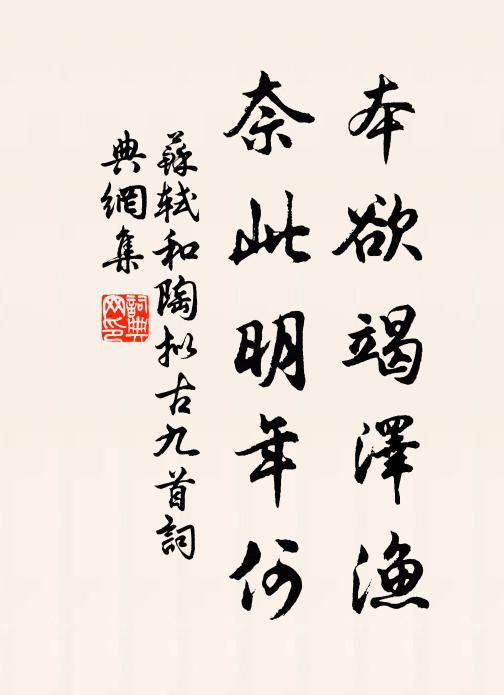 本欲竭澤漁
奈此明年何
蘇軾和陶擬古九首詞
典網集
詞典
网印